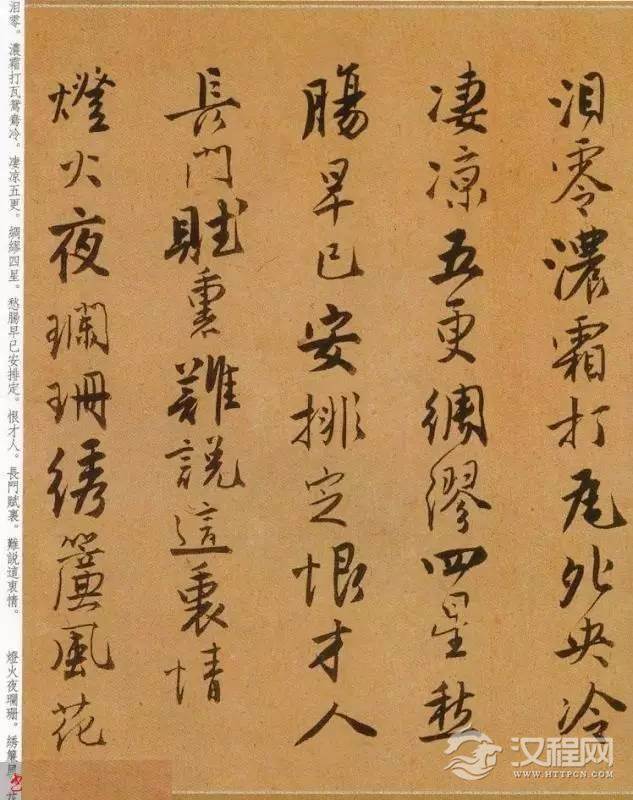 泪零濃霜打瓦夗央冷
凄凉五更綢繆四星愁
腸早已安排定恨才人
長門賦裏難説這衷情
燈火夜瓓珊绣簾風花
泪零。濃霜打瓦鴛鴦冷。凄凉五更。綢繆四星。愁腸早已安排定。恨才人。長門賦裏。難説這衷情。 燈火夜瓓珊。绣簾
汉程网
WWW.HTTPCN.COM